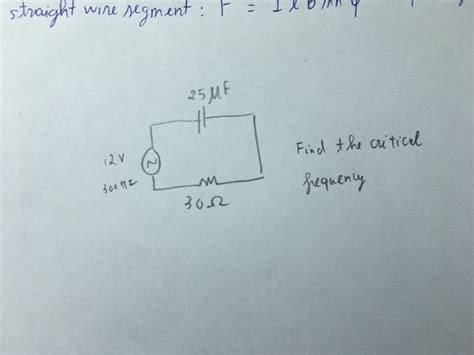 straight wire segment : F = I l B sin φ
25 μF
12V
300 HZ
30Ω
Find the critical
frequency